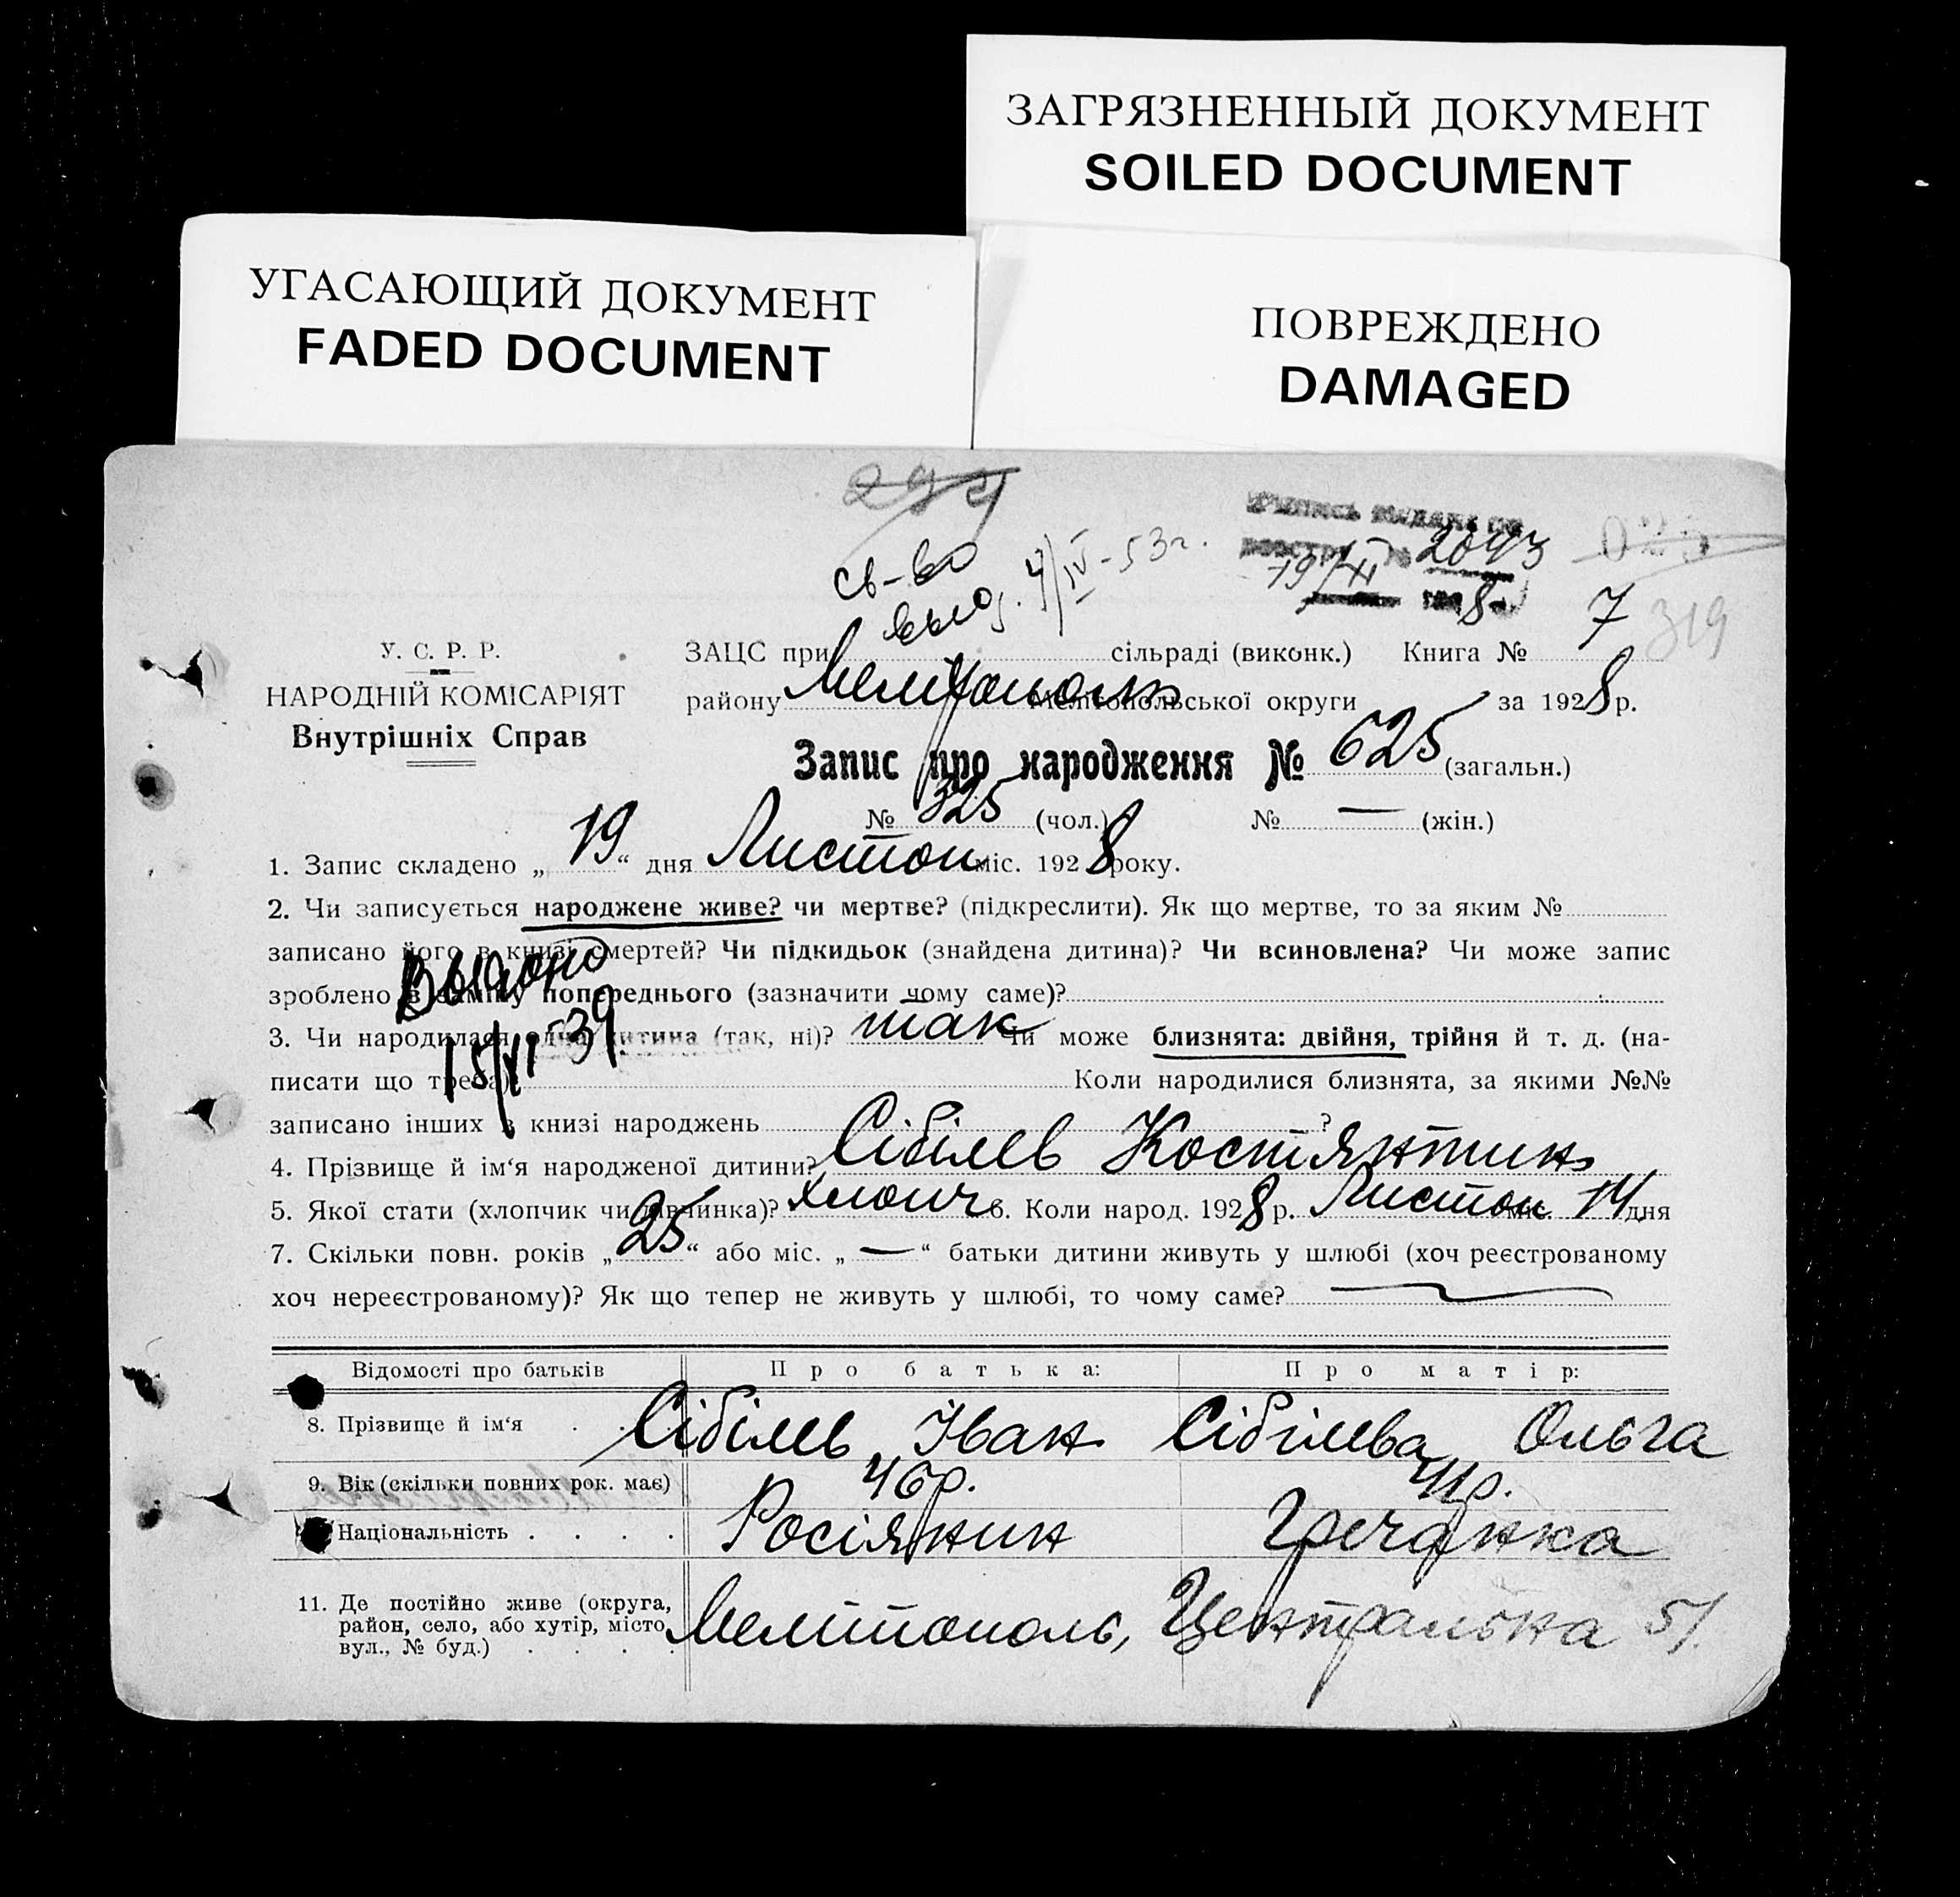 ЗАГРЯЗНЕННЫЙ ДОКУМЕНТ
SOILED DOCUMENT
УГАСАЮЩИЙ ДОКУМЕНТ
FADED DOCUMENT
ПОВРЕЖДЕНО
DAMAGED
св-во
выд. 4/IV-53г.
2043
19/XI 8
319
У. С. Р. Р.
НАРОДНІЙ КОМІСАРІЯТ
Внутрішніх Справ
ЗАЦС при сільраді (виконк.) Книга № 7
району Мелітополь Мелітопольської округи за 1928 р.
Запис про народження № 625 (загальн.)
№ 325 (чол.) № — (жін.)
1. Запис складено „19“ дня Листоп міс. 1928 року.
2. Чи записується народжене живе? чи мертве? (підкреслити). Як що мертве, то за яким №
записано його в книзі смертей? Чи підкидьок (знайдена дитина)? Чи всиновлена? Чи може запис
зроблено в заміну попереднього (зазначити чому саме)?
Выдано
15/VI-39
3. Чи народилася одна дитина (так, ні)? так Чи може близнята: двійня, трійня й т. д. (на-
писати що треба) Коли народилися близнята, за якими №№
записано інших в книзі народжень ?
4. Прізвище й ім‘я народженої дитини? Сібілев Костянтин
5. Якої стати (хлопчик чи дівчинка)? хлопч 6. Коли народ. 1928 р. Листоп міс. 14 дня
7. Скільки повн. років „25“ або міс. „—“ батьки дитини живуть у шлюбі (хоч реєстрованому
хоч нереєстрованому)? Як що тепер не живуть у шлюбі, то чому саме?
Відомості про батьків Про батька: Про матір:
8. Прізвище й ім‘я . . Сібілев Іван Сібілева Ольга
9. Вік (скільки повних рок. має) 46р. 41р.
Національність . . . . Росіянин Гречанка
11. Де постійно живе (округа,
район, село, або хутір, місто,
вул., № буд.) . . . . Мелітополь, Центральна 51.